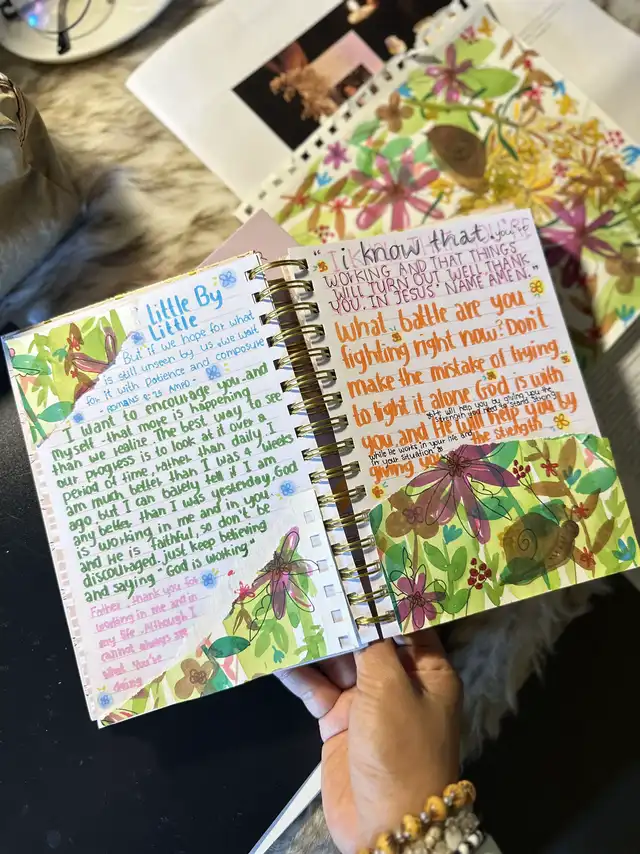 Little By
Little
But if we hope for what
is still unseen by us, we wait
for it with patience and composure
- Romans 8:25 AMPC -
I want to encourage you and
myself that more is happening
than we realize. The best way to see
our progress is to look at it over a
period of time rather than daily. I
am much better than I was 2 weeks
ago but I can barely tell if I am
any better than I was yesterday. God
is working in me and in you
and He is faithful, so don't be
discouraged. just keep believing
and saying, God is working
Father, thank you for
working in me and in
my life. Although I
cannot always see
what You're
doing
"i know that
WORKING AND THAT THINGS
WILL TURN OUT WELL. THANK
YOU, IN JESUS' NAME AMEN."
What battle are you
fighting right now? Don't
make the mistake of trying
to fight it alone. God is with
you and He will help you by
giving you the strength
He will help you by giving you the
strength you need to stand strong
while He works in your life and
in your situation.